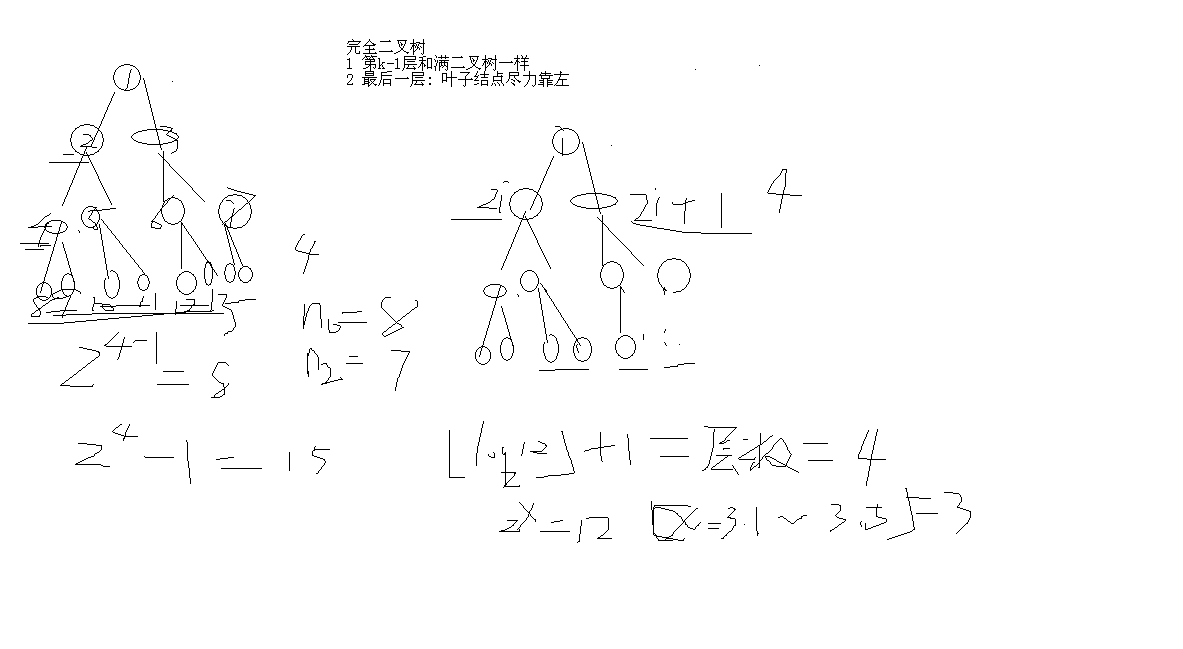 完全二叉树
1 第k-1层和满二叉树一样
2 最后一层: 叶子结点尽力靠左
1
2 3
4 5 6 7
8 9 10 11 12 13
1
2i 2i+1 4
4
n0=8
n2=7
2^4-1=8
2^4-1=15
⌊log2 12⌋+1=层数=4
2^x=12 x=3.1~3.5⌋=3